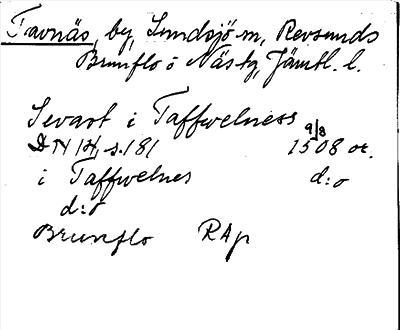 Tavnäs, by, Sundsjö sn, Revsunds
Brunflo o Näs tg, Jämtl. l.
Sevast i Taffwelness 9/8
DN 14, s. 181 1508 or.
i Taffwelnes d:o
d:o
Brunflo RAp